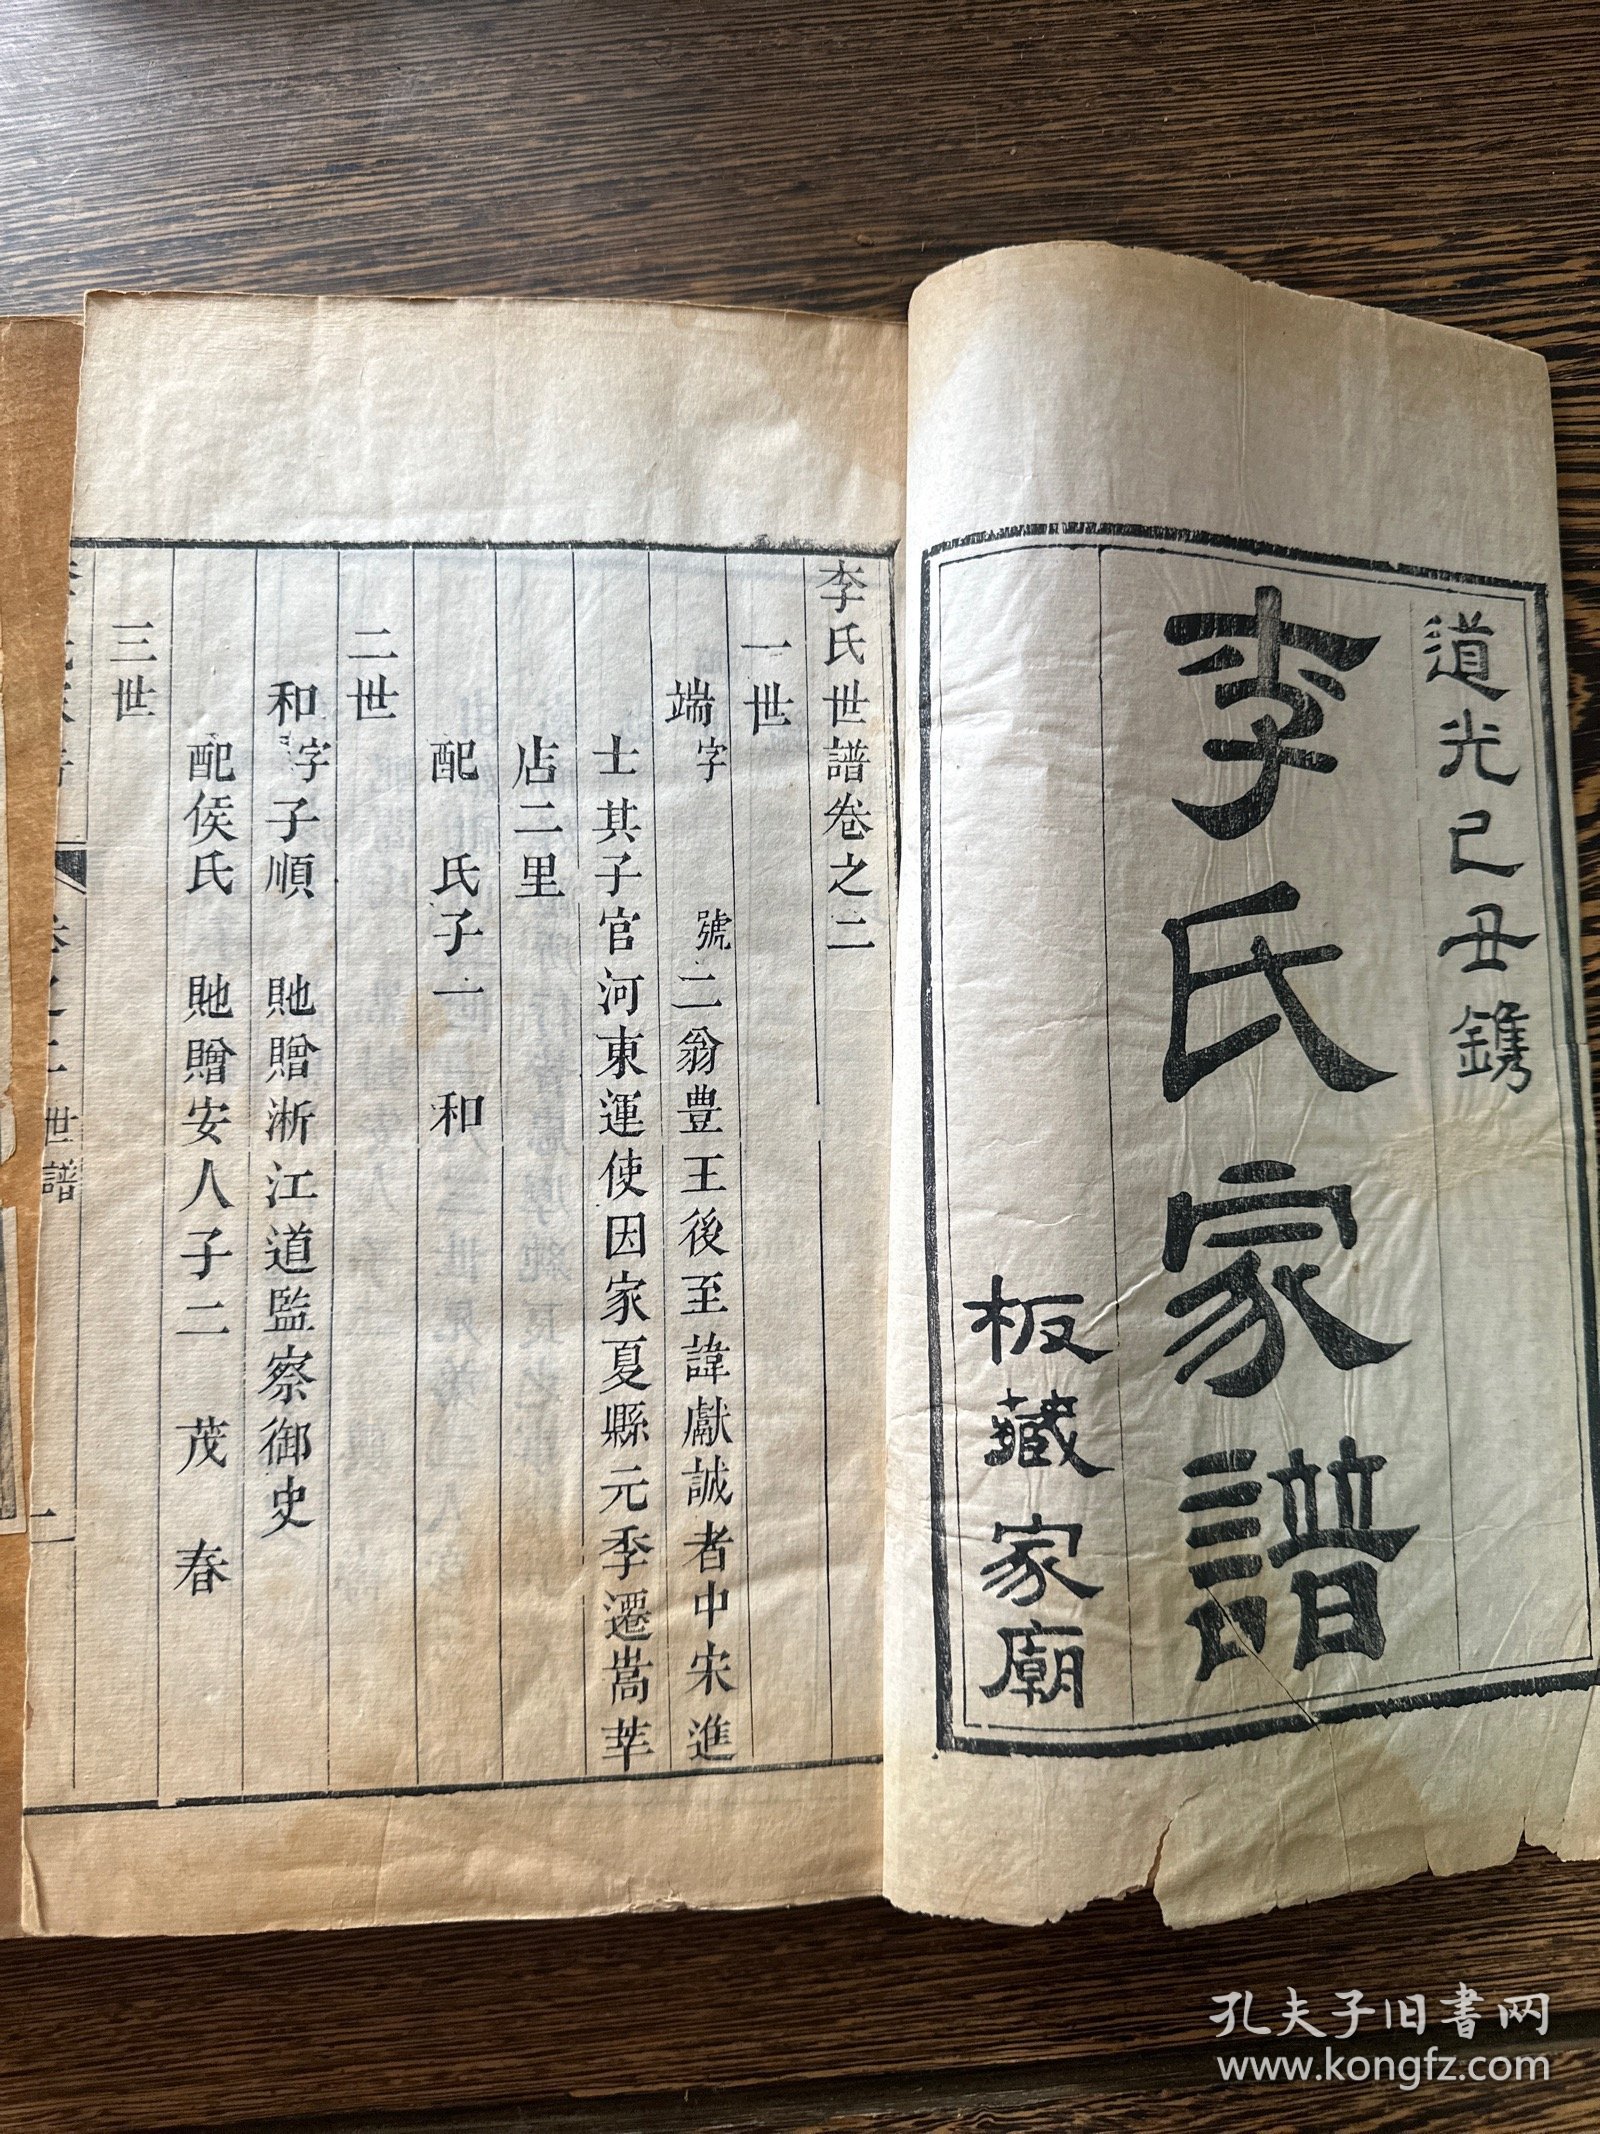 道光己丑鐫
李氏家譜
板藏家廟
李氏世譜卷之二
一世
端字 號二翁豊王後至諱獻誠者中宋進
士其子官河東運使因家夏縣元季遷嵩莘
店二里
配 氏子一 和
二世
和字子順 貤贈浙江道監察御史
配侯氏 貤贈安人子二 茂 春
三世
世譜
孔夫子旧书网
www.kongfz.com